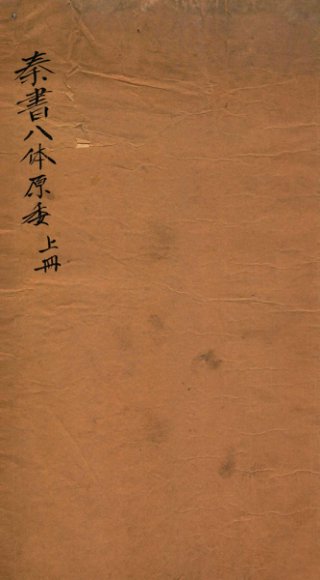 秦書八体原委 上冊